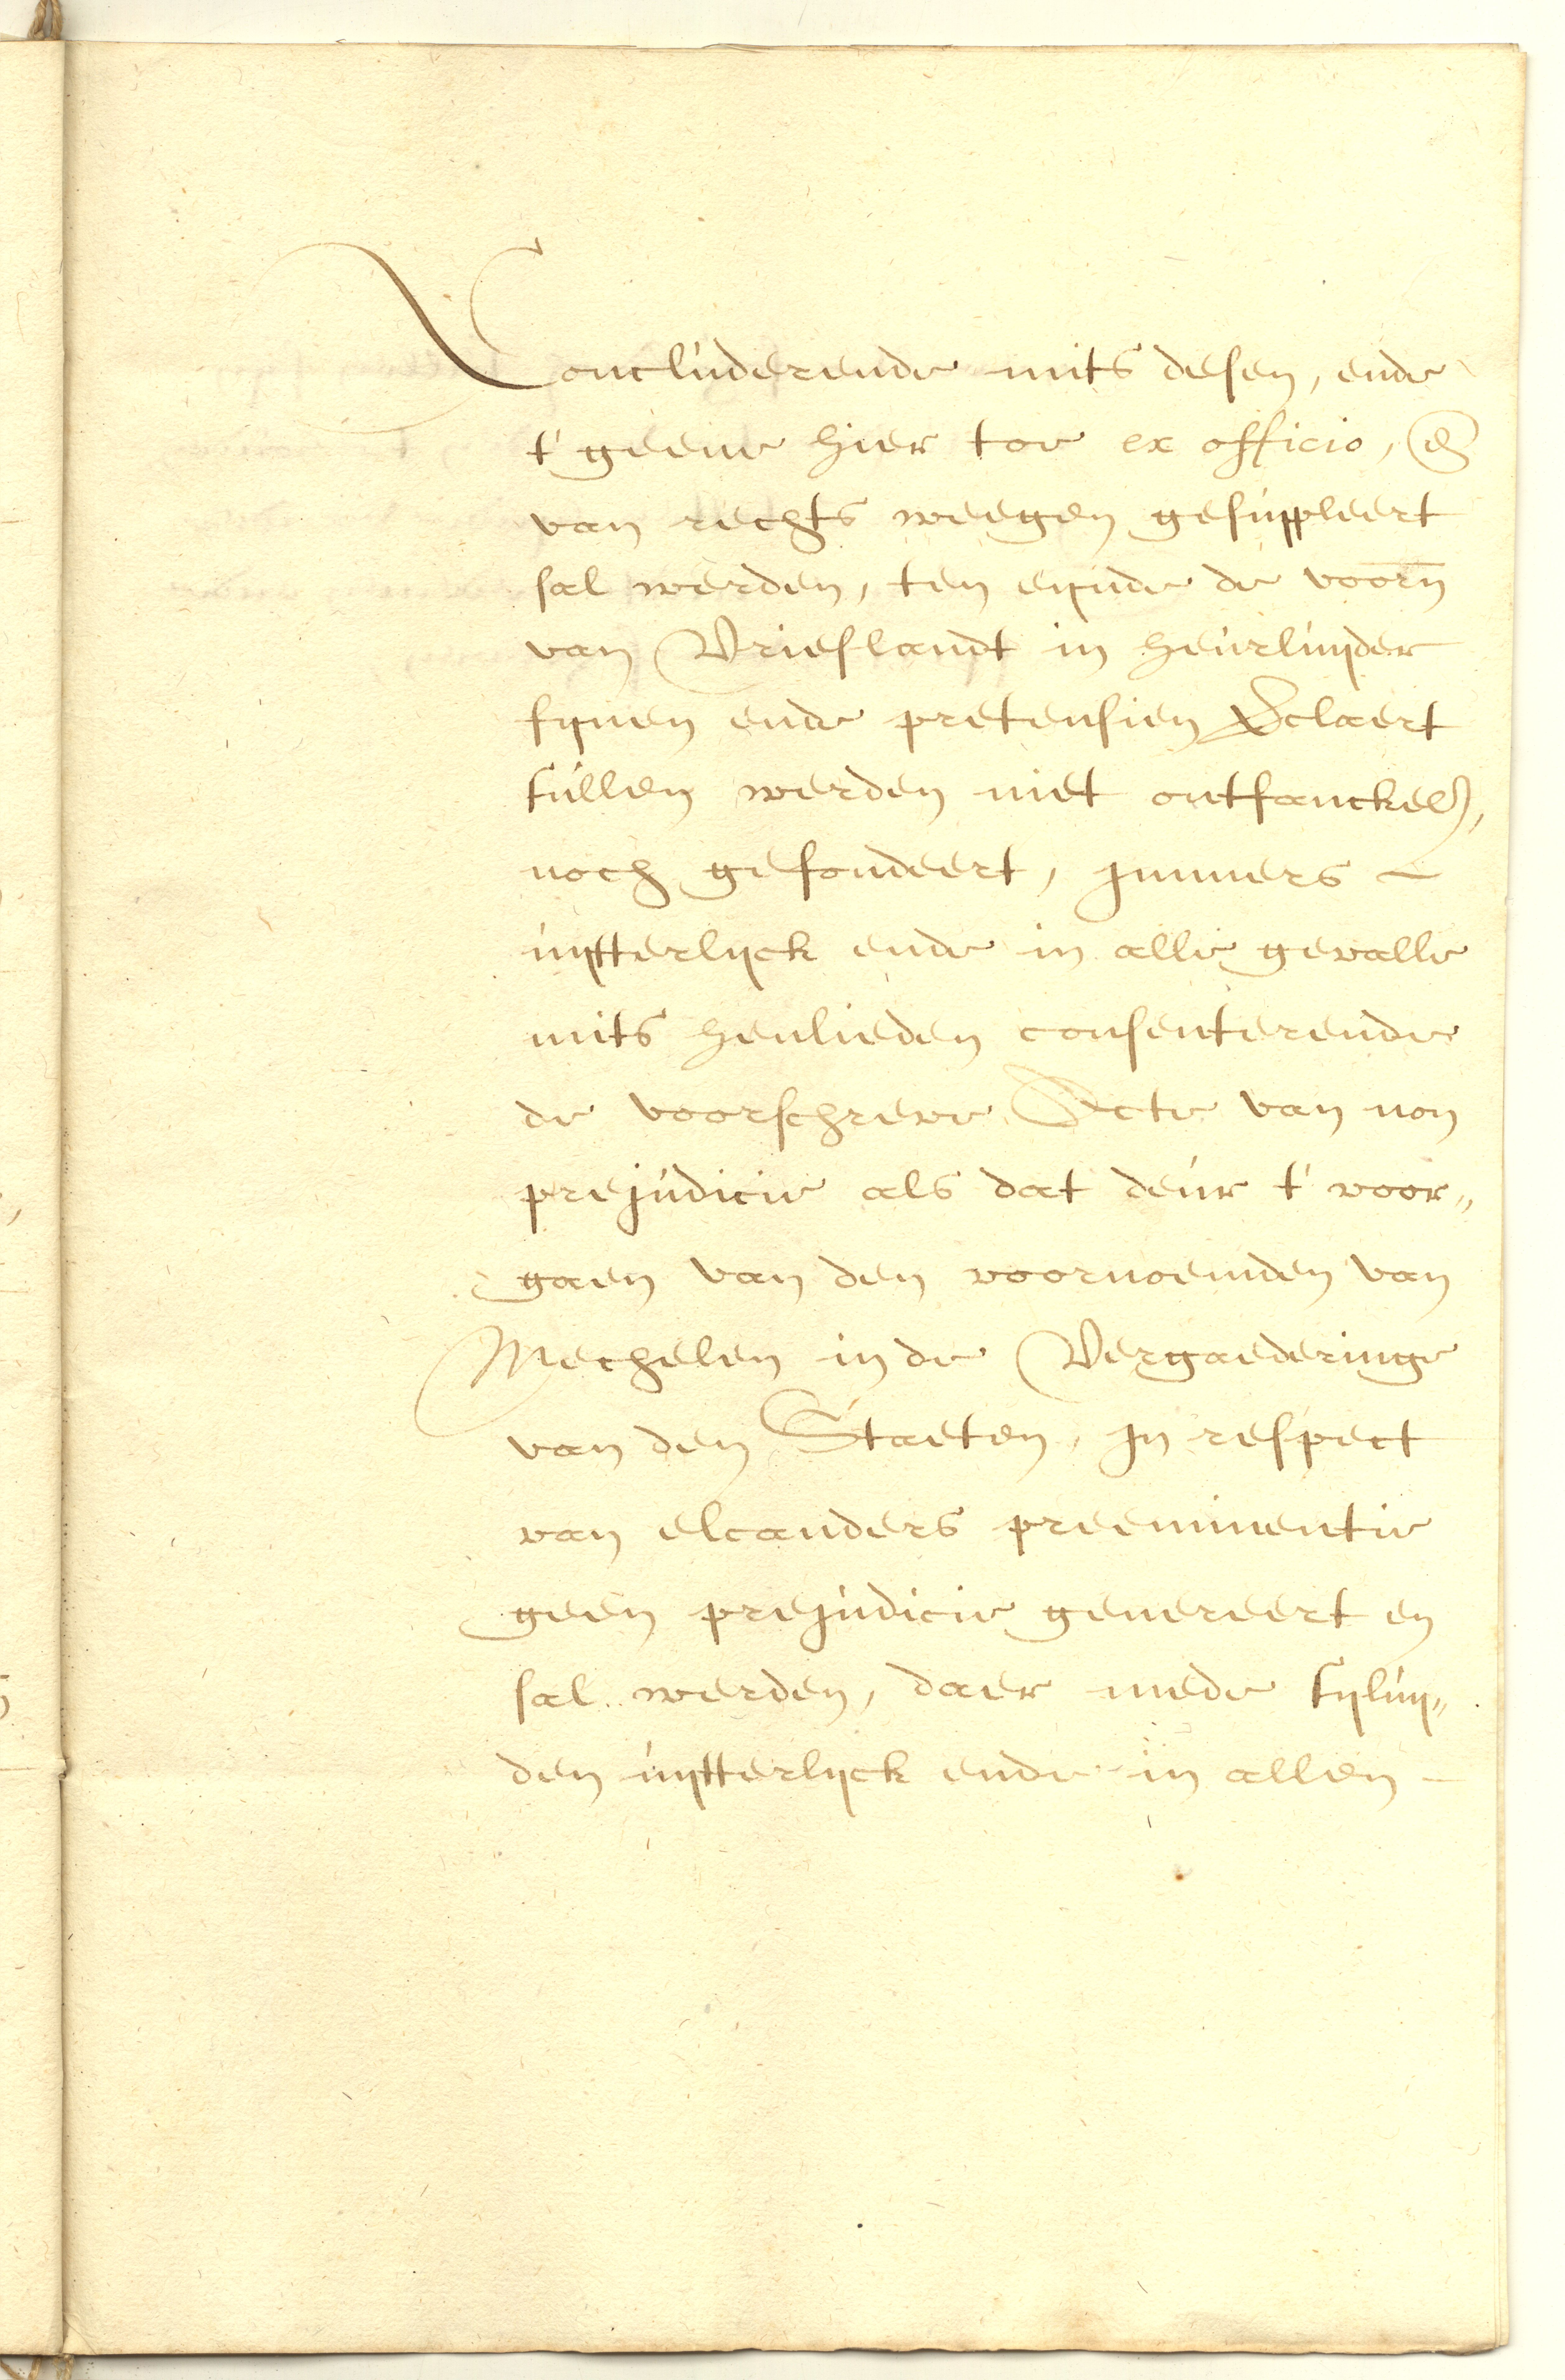 Concluderende mits desen, ende
t' geene hier toe ex officio, en̄
van rechts weegen gesuppleert
sal werden, ten eijnde de voorn̄
van Vrieslandt in heurluijder
fijnen ende pretensien v̄claert
sullen werden niet ontfanckel̄,
noch gefondeert, jmmers -
uijtterlijck ende in alle gevalle
mits henlieden consenterende
de voorschreve Acte van non
prejudicie als dat deur t' voor„
gaen van den voornoemden van
Mechelen in de Vergaederinge
van den Staeten, jn respect
van elcanders preeminentie
geen prejudicie genereert en
sal werden, daer mede sijluij„
den uijtterlijck ende in allen -